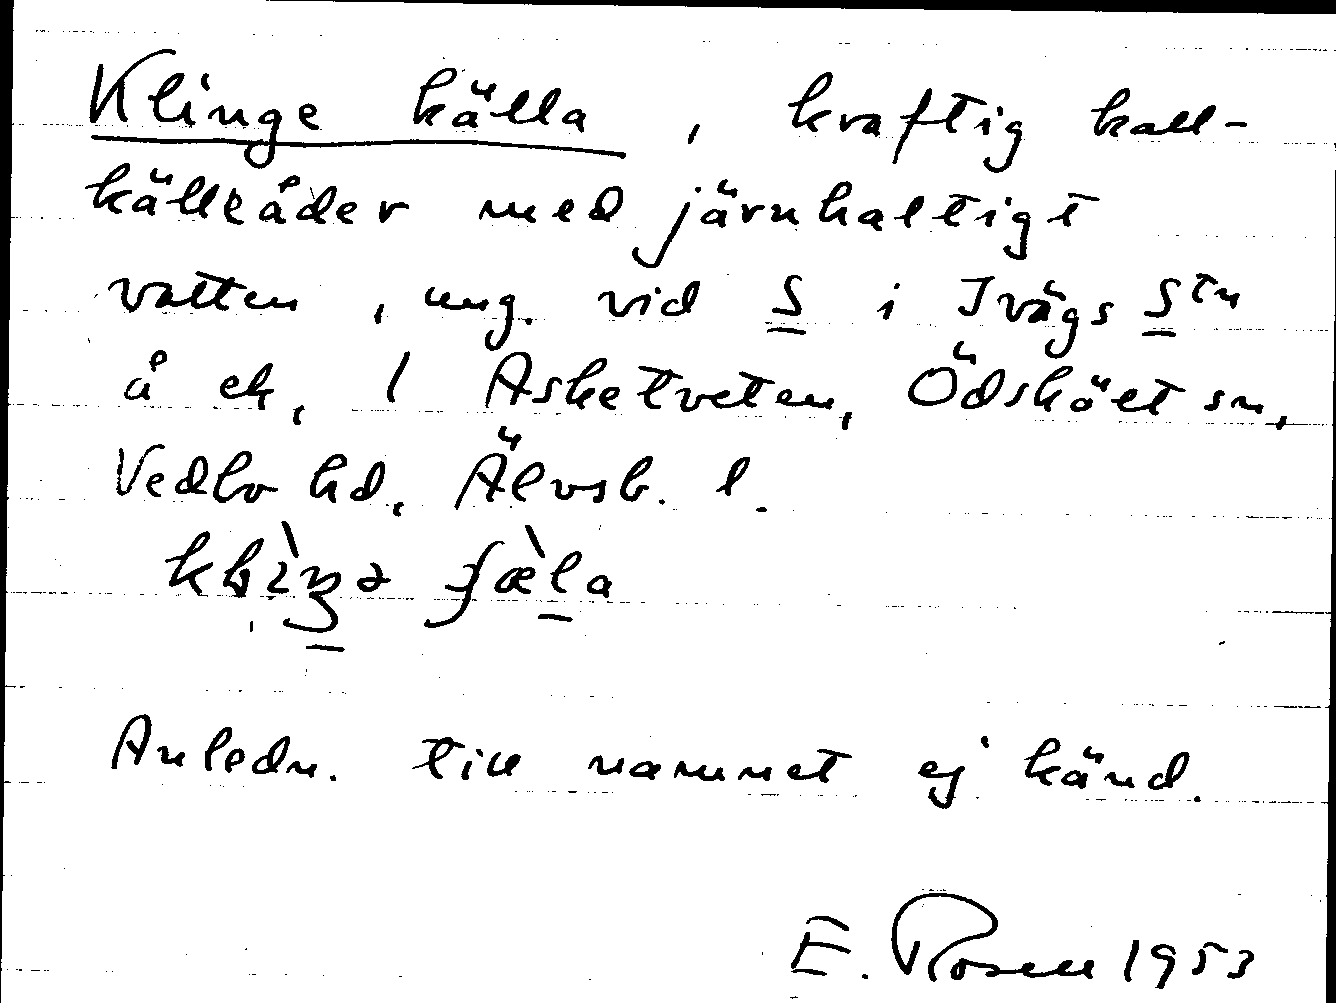 Klinge källa, kraftig kall-
källåder med järnhaltigt
vatten, ung. vid S i Ivägs Stn
å ek, 1 Asketveten, Ödsköet sn,
Vedbo hd. Älvsb. l.
Anledn. till namnet ej känd.
E. Rosen 1953